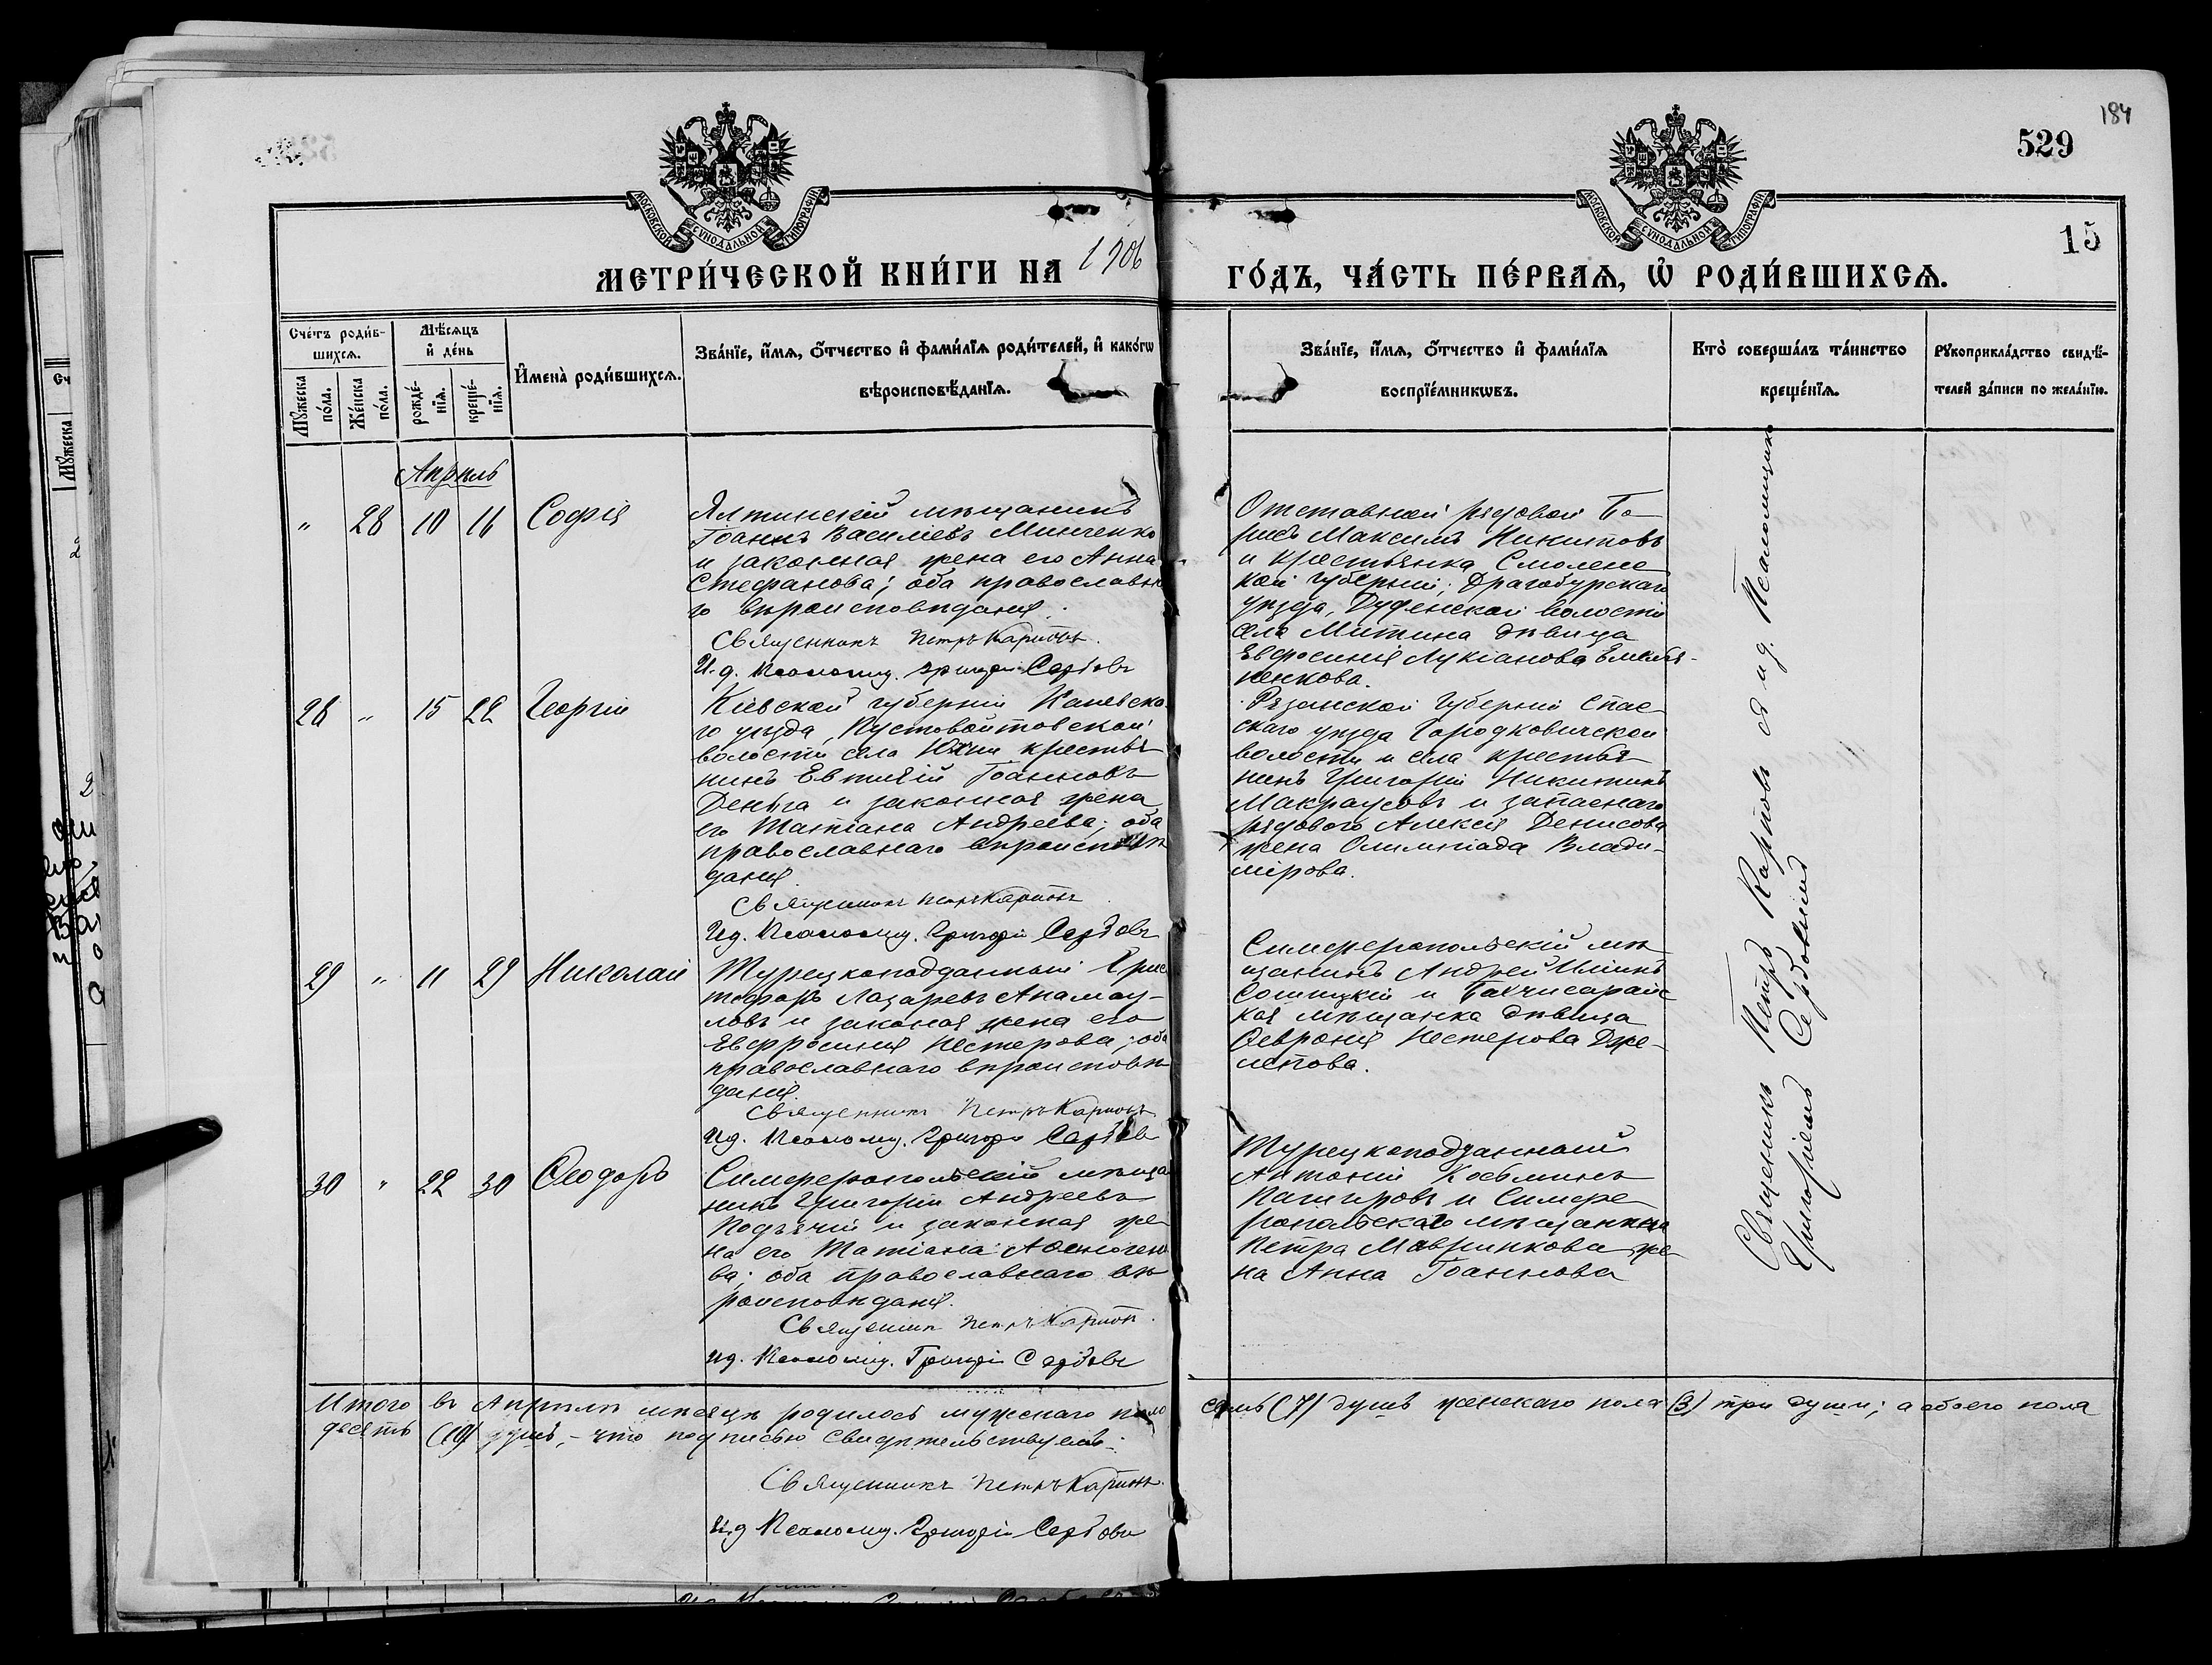 184
529
15
МОСКОВСКОЙ СУНОДАЛЬНОЙ ТИПОГРАФІИ
МОСКОВСКОЙ СУНОДАЛЬНОЙ ТИПОГРАФІИ
МЕТРИ́ЧЕСКОЙ КНИ́ГИ НА 1906 ГО́ДЪ, ЧА́СТЬ ПЕ́РВАѦ, Ѡ҆ РОДИ́ВШИХСѦ.
Сче́тъ роди́в-
шихсѧ.
Мꙋ́жеска по́ла.
Же́нска по́ла.
Мѣ́сѧцъ
и҆ де́нь
рожде́-
нїѧ.
креще́-
нїѧ.
И҆мена̀ роди́вшихсѧ.
Зва́нїе, и҆́мѧ, ѻ҆́тчество и҆ фами́лїѧ роди́телей, и҆ како́гѡ
вѣроисповѣ́данїѧ.
Зва́нїе, и҆́мѧ, ѻ҆́тчество и҆ фами́лїѧ
воспрїе́мникѡвъ.
Кто̀ соверша́лъ та́инство
креще́нїѧ.
Рꙋкоприкла́дство свидѣ́-
телей за́писи по жела́нїю.
Апрѣль
" 28 10 16 Софія
Ялтинскій мѣщанинъ
Іоаннъ Василіевъ Минченко
и законная жена его Анна
Стефанова; оба православна
го вѣроисповѣданія.
Священникъ Петръ Карповъ.
И. д. Псаломщ. Григорій Сербовъ
Отставной рядовой Бо-
рисъ Максимъ Никитовъ
и крестьянка Смоленс
кой губерніи, Драгобурскаго
уѣзда, волости
села Митина дѣвица
Евфросинія Лукіанова Емелья-
ненкова.
28 " 15 22 Георгій
Кіевской губерніи Каневска
го уѣзда, Пустовойтовской
волости села крестья
нинъ Евтихій Іоанновъ
Деньга и законная жена
его Татіана Андреева; оба
православнаго вѣроисповѣ
данія.
Священникъ Петръ Карповъ
И. д. Псаломщ. Григорій Сербовъ
Рязанской губерніи Спас
скаго уѣзда Городковической
волости и села крестья
нинъ Григорій Никитинъ
Макраусовъ и запаснаго
рядового Алексія Денисова
жена Олимпіада Влади-
мірова.
29 " 11 29 Николай
Турецкоподданный Хрис
тофоръ Лазаревъ
и законая жена его
Евфросинія Нестерова; оба
православнаго вѣроисповѣ
данія.
Священникъ Петръ Карповъ
И. д. Псаломщ. Григорій Сербовъ
Симферопольскій мѣ
щанинъ Андрей Ильинъ
и Бахчисарайс
кая мѣщанка дѣвица
Февронія Нестерова Дже-
лепова.
30 " 22 30 Ѳеодоръ
Симферопольскій мѣща
нинъ Григорій Андреевъ
Подъячій и законная же
на его Татіана Аѳиноген
ва; оба православнаго вѣ
роисповѣданія.
Священникъ Петръ Карповъ.
И. д. Псаломщ. Григорій Сербовъ
Турецкоподданный
Антоній Косьминъ
и Симфе
ропольскаго мѣщанина
Петра Мавринкова же
на Анна Іоаннова
Священникъ Петръ Карповъ съ и. д. Псаломщика
Григоріемъ Сербовымъ
Итого въ Апрѣлѣ мѣсяцѣ родилось мужскаго пола семь (7) душъ женскаго пола (3) три души; а обоего пола
десять (10) душъ, - что подписью свидѣтельствуемъ:
Священникъ Петръ Карповъ.
И. д. Псаломщ. Григорій Сербовъ